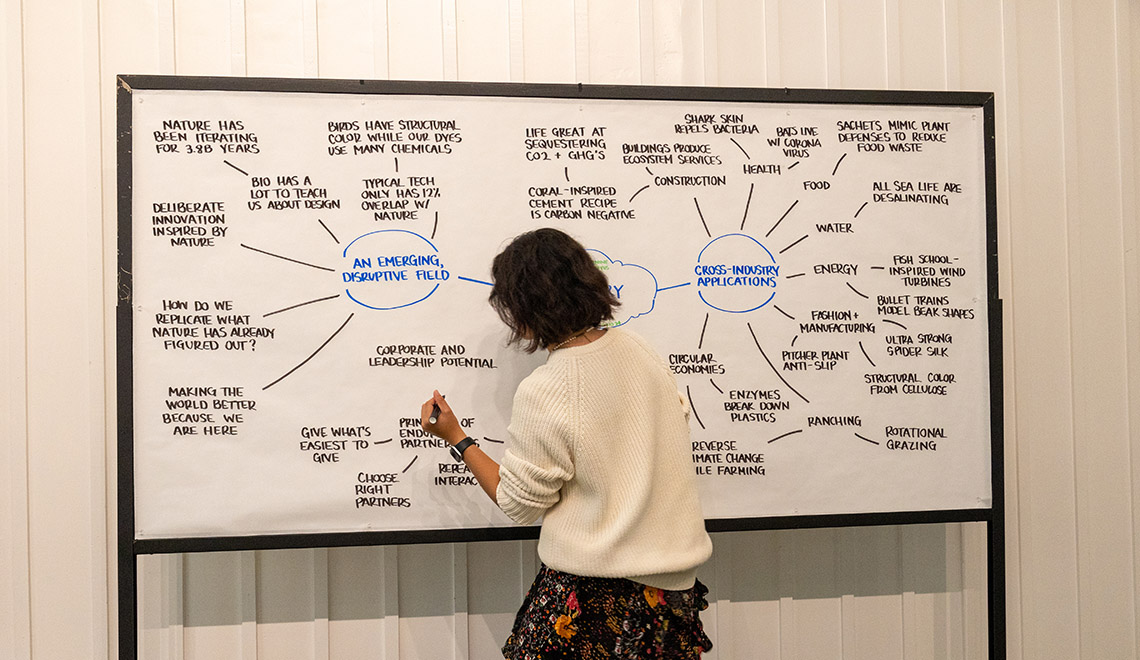 NATURE HAS
BEEN ITERATING
FOR 3.8B YEARS
BIO HAS A
LOT TO TEACH
US ABOUT DESIGN
BIRDS HAVE STRUCTURAL
COLOR WHILE OUR DYES
USE MANY CHEMICALS
TYPICAL TECH
ONLY HAS 12%
OVERLAP W/
NATURE
DELIBERATE
INNOVATION
INSPIRED BY
NATURE
AN EMERGING,
DISRUPTIVE FIELD
HOW DO WE
REPLICATE WHAT
NATURE HAS ALREADY
FIGURED OUT?
MAKING THE
WORLD BETTER
BECAUSE WE
ARE HERE
CORPORATE AND
LEADERSHIP POTENTIAL
OF
GIVE WHAT'S
EASIEST TO
GIVE
CHOOSE
RIGHT
PARTNERS
LIFE GREAT AT
SEQUESTERING
CO2 + GHG'S
CORAL-INSPIRED
CEMENT RECIPE
IS CARBON NEGATIVE
BUILDINGS PRODUCE
ECOSYSTEM SERVICES
CONSTRUCTION
SHARK SKIN
REPELS BACTERIA
BATS LIVE
W/ CORONA
VIRUS
HEALTH
SACHETS MIMIC PLANT
DEFENSES TO REDUCE
FOOD WASTE
FOOD
ALL SEA LIFE ARE
DESALINATING
WATER
CROSS-INDUSTRY
APPLICATIONS
ENERGY
FISH SCHOOL-
INSPIRED WIND
TURBINES
BULLET TRAINS
MODEL BEAK SHAPES
FASHION +
MANUFACTURING
ULTRA STRONG
SPIDER SILK
PITCHER PLANT
ANTI-SLIP
STRUCTURAL COLOR
FROM CELLULOSE
CIRCULAR
ECONOMIES
ENZYMES
BREAK DOWN
PLASTICS
RANCHING
ROTATIONAL
GRAZING
REVERSE
CHANGE
FARMING